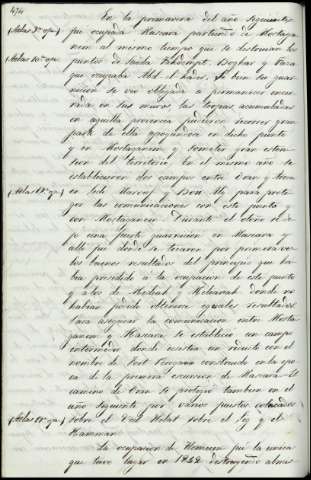 474
En la primavera del año siguiente
fué ocupada Mascara partiendo de Mostaga
nem al mismo tiempo que se destruian los
puntos de Saida Boghar y Taza
que ocupaba Abd el Kader. Si bien su guar
nicion se vió obligada a permanecer encer
rada en sus muros, las tropas acumuladas
en aquella provincia pudieron recorrer gran
parte de ella apoyandose en dicho punto
y en Mostaganem y someter gran esten
sion del territorio. En el mismo año se
establecieron dos campos entre Oran y
en Sidi y para prote
ger las comunicaciones con este punto y
con Mostaganem. Durante el otoño se de
jo una fuerte guarnicion en Mascara y
alli fué donde se tocaron por primera vez
los buenos resultados del principio que ha
bia presidido a la ocupacion de este punto
y a los de Medeah y Milianah donde no
habian podido obtenerse iguales resultados.
Para asegurar la comunicacion entre Mosta
ganem y Mascara se establecio un campo
intermedio donde existia un reducto con el
nombre de Fort construido en la epo
ca de la primera escursion de Mascara. El
camino de Oran se protegio tambien en el
año siguiente por varios puestos colocados
sobre el sobre el Sig y el
Hamman
La ocupacion de Tlemcen fué la unica
que tuvo lugar en 1842 destruyendo